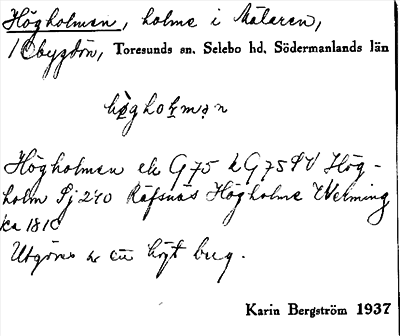 Högholmen, holme i Mälaren,
/Obygdön, Toresunds sn. Selebo hd. Södermanlands län
högholmən
Högholmen ek G 75 k G 75 Hög-
holm Sj 240 Räfsnäs Högholme Werming
ka 1810
Utgöres av ett högt berg.
Karin Bergström 1937